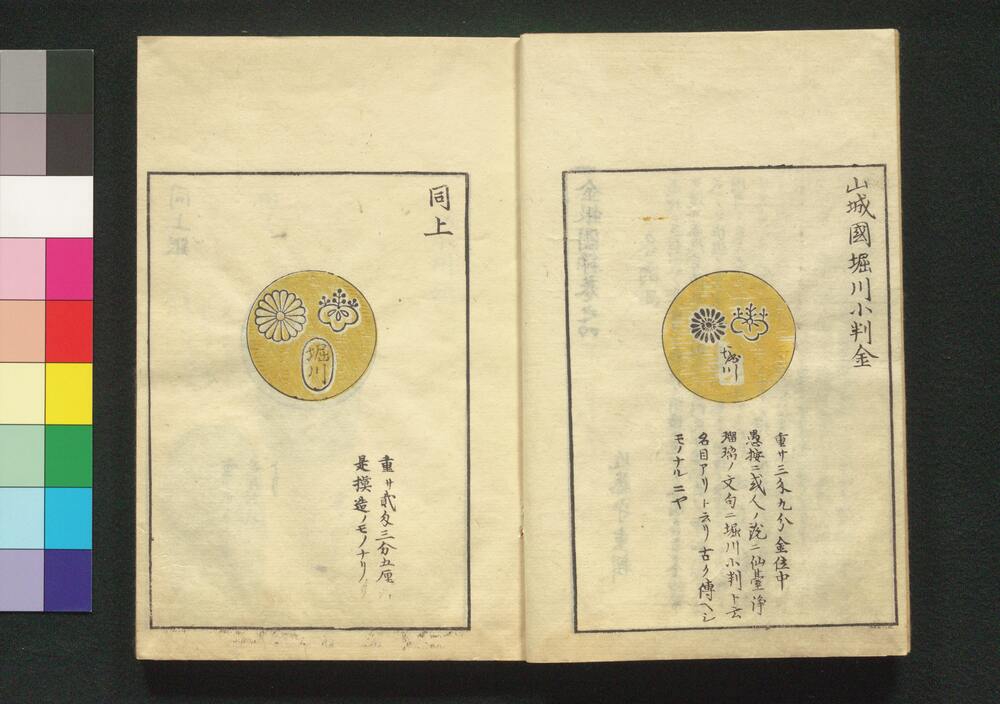 山城國堀川小判金
堀川
重サ三匁九分金位中
愚按ニ或人ノ説ニ仙臺浄
瑠璃ノ文句ニ堀川小判ト云
名目アリト云リ古ク傳ヘシ
モノナルニヤ
同上
堀川
重サ貳匁三分五厘
是摸造ノモノナリ